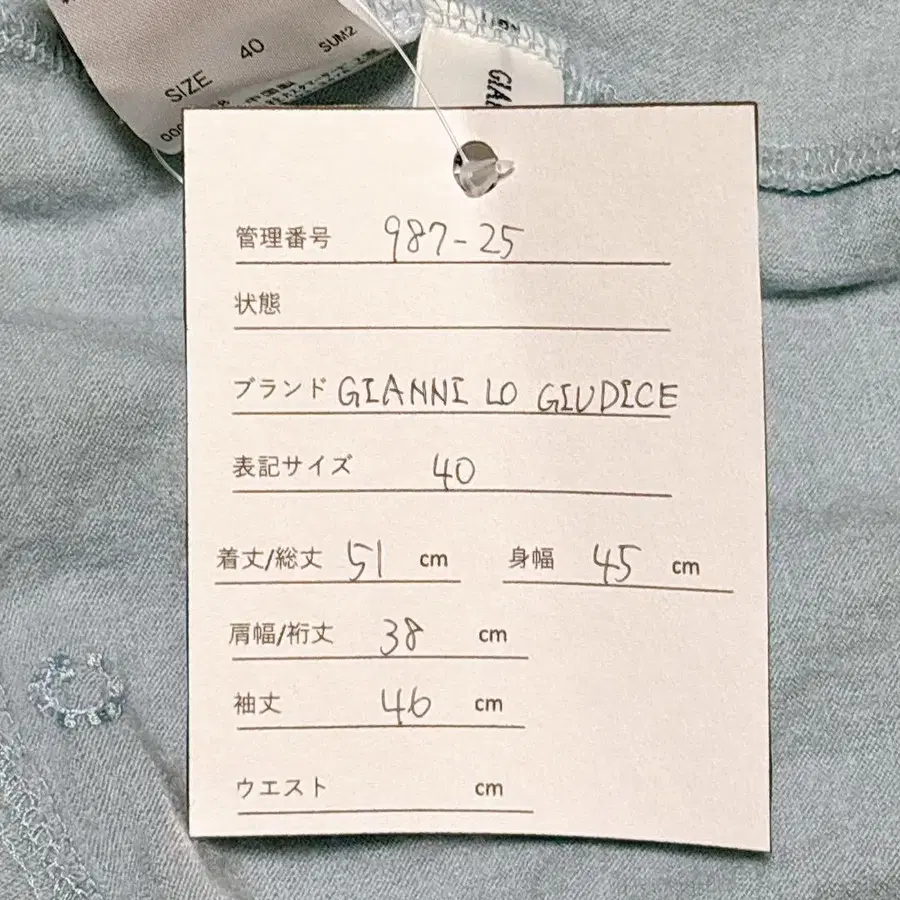 SIZE 40
SUM2
中国製
GIA
管理番号 987-25
状態
ブランド GIANNI LO GIUDICE
表記サイズ 40
着丈/総丈 51 cm 身幅 45 cm
肩幅/裄丈 38 cm
袖丈 46 cm
ウエスト cm